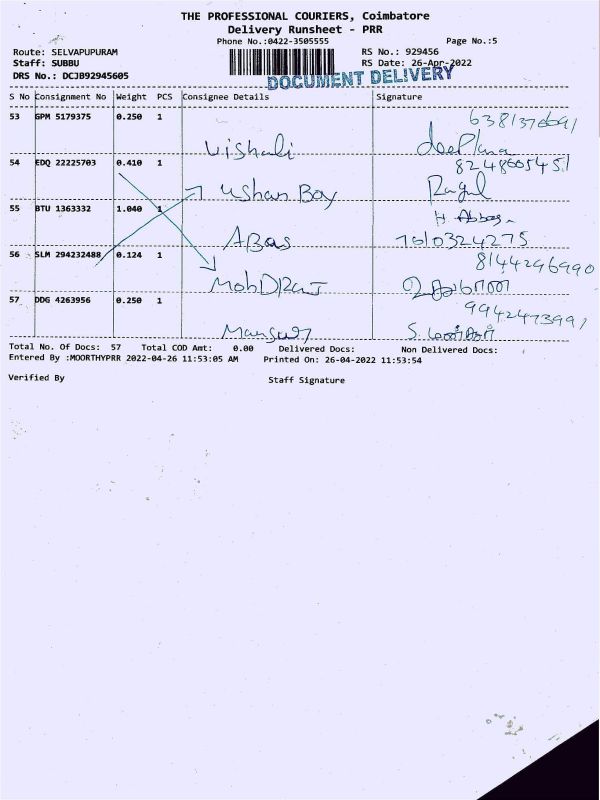 THE PROFESSIONAL COURIERS, Coimbatore
Delivery Runsheet - PRR
Phone No.:0422-3505555 Page No.:5
Route: SELVAPUPURAM RS No.: 929456
Staff: SUBBU RS Date: 26-Apr-2022
DRS No.: DCJB92945605 DOCUMENT DELIVERY
S No Consignment No Weight PCS Consignee Details Signature
53 GPM 5179375 0.250 1
Vishali
54 EDQ 22225703 0.410 1
Ushan Boy Ragul
55 BTU 1363332 1.040 1
H Abbas
ABas
56 SLM 294232488 0.124 1 8144296990
57 DDG 4263956 0.250 1
Total No. Of Docs: 57 Total COD Amt: 0.00 Delivered Docs: Non Delivered Docs:
Entered By :MOORTHYPRR 2022-04-26 11:53:05 AM Printed On: 26-04-2022 11:53:54
Verified By Staff Signature